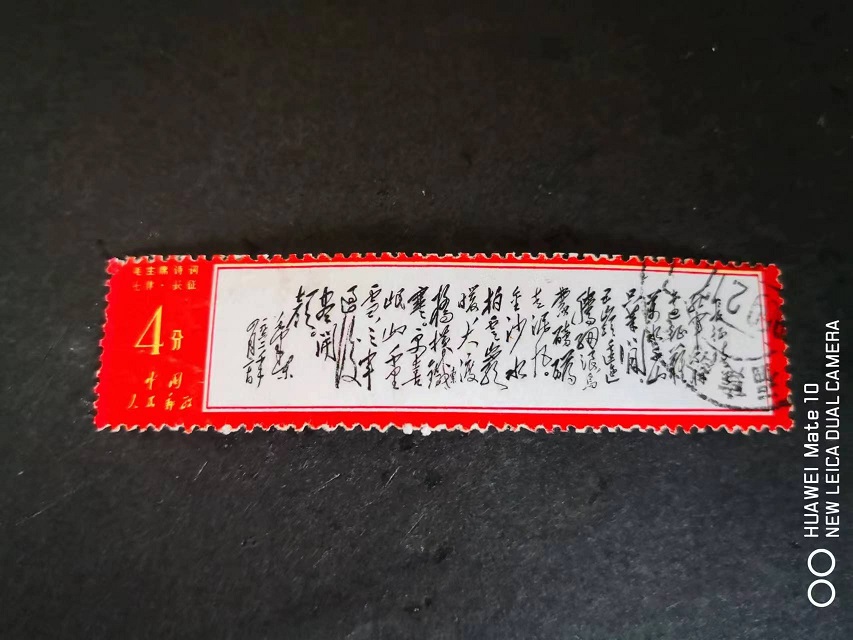 毛主席诗词
七律·长征
4分
中国
人民邮政
长征诗
红军
不怕远征难
万水千山
只等闲
五岭逶迤
腾细浪乌
蒙磅礴
走泥丸
金沙水
拍云崖
暖大渡
桥横铁索
寒更喜
岷山千里
雪三军
过后
尽开
颜
毛泽东
HUAWEI Mate 10
NEW LEICA DUAL CAMERA